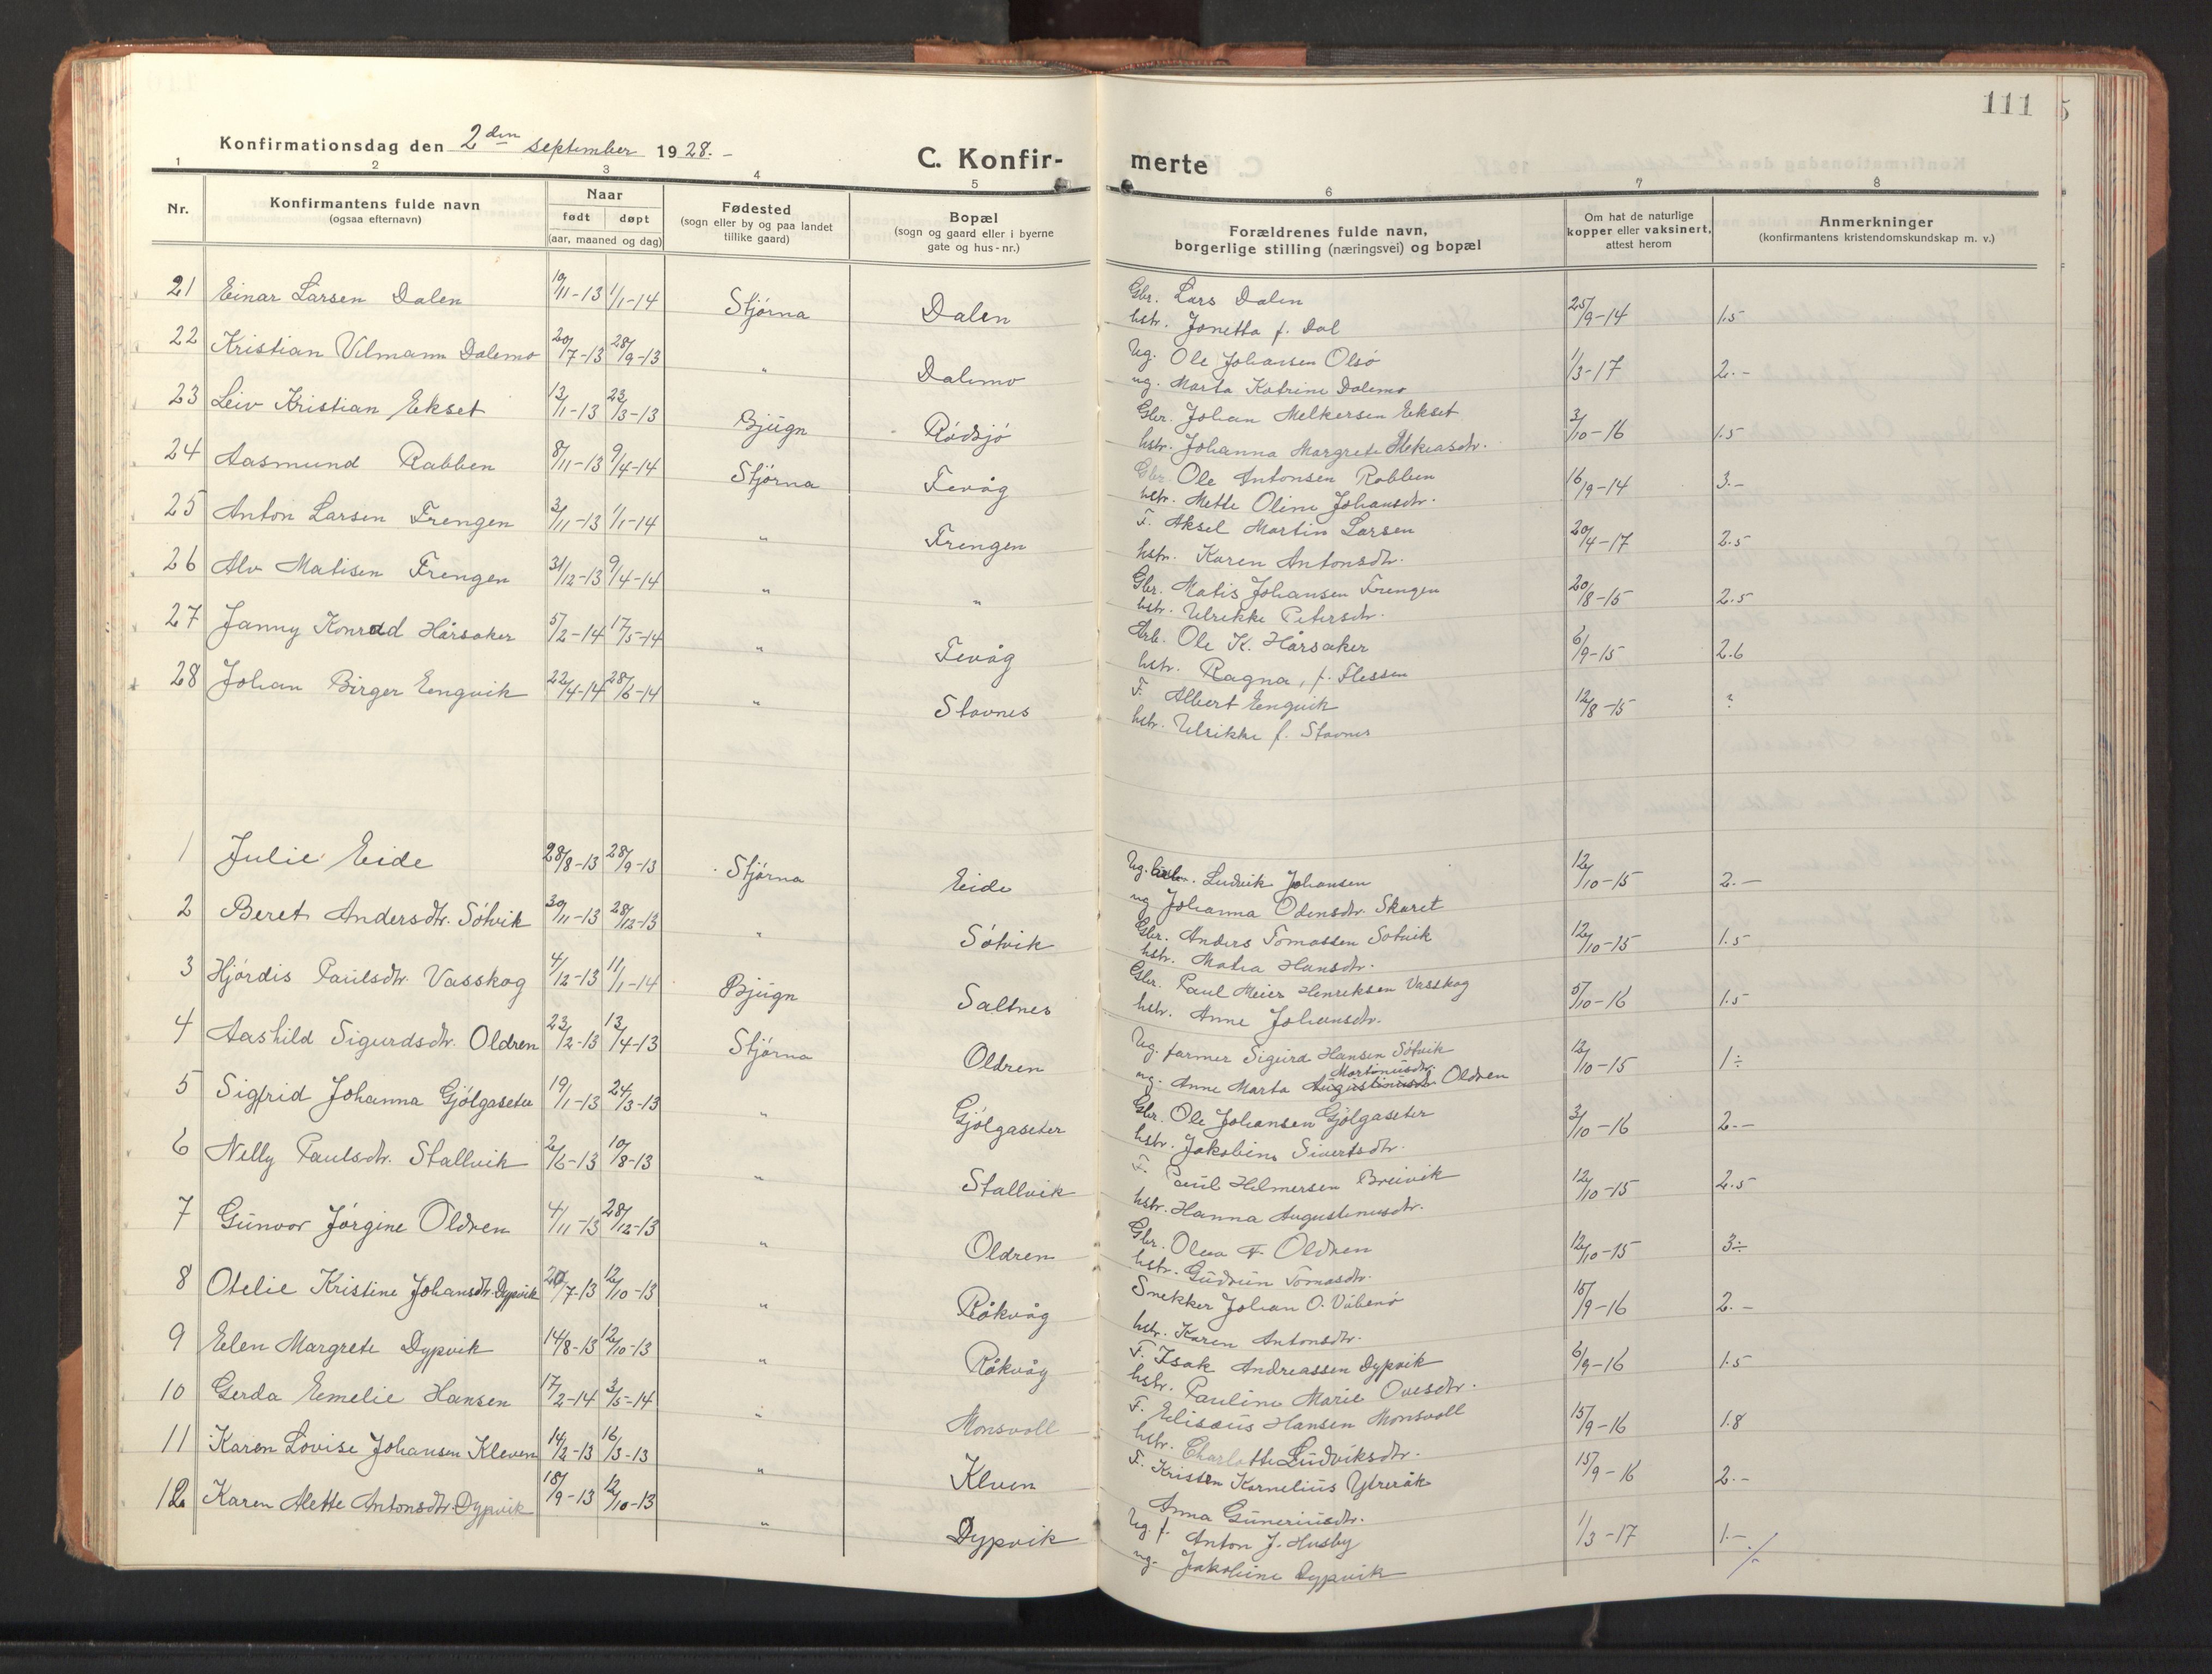 111
Konfirmationsdag den 2den september 1928. -
C. Konfir- merte
1 2 3 4 5 6 7 8
Nr.
Konfirmantens fulde navn
(ogsaa efternavn)
Naar
født døpt
(aar, maaned og dag)
Fødested
(sogn eller by og paa landet
tillike gaard)
Bopæl
(sogn og gaard eller i byerne
gate og hus-nr.)
Forældrenes fulde navn,
borgerlige stilling (næringsvei) og bopæl
Om hat de naturlige
kopper eller vaksinert,
attest herom
Anmerkninger
(konfirmantens kristendomskundskap m. v.)
21 Einar Larsen Dalen 10/11-13 1/1-14 Stjørna Dalen Gbr. Lars Dalen 25/9-14 1.5
hstr. Jonetta f. Dal
22 Kristian Vilmann Dalemo 20/7-13 28/9-13 " Dalemo Ug. Ole Johansen Olsø 1/3-17 2.-
ug. Marta Katrine Dalemo
23 Leiv Kristian Ekset 13/1-13 23/3-13 Bjugn Rødsjø Gbr. Johan Melkersen Ekset 3/10-16 1.5
hstr. Johanna Margrete
24 Aasmund Rabben 8/11-13 9/4-14 Stjørna Fevåg Gbr. Ole Antonsen Rabben 16/9-14 3.-
hstr. Mette Oline Johansdtr.
25 Anton Larsen Frengen 3/11-13 1/1-14 " Frengen F. Aksel Martin Larsen 20/4-17 2.5
hstr. Karen Antonsdtr.
26 Alv Matisen Frengen 31/12-13 9/4-14 " " Gbr. Matis Johansen Frengen 20/8-15 2.5
hstr. Ulrikke Petersdtr.
27 Janny Konrad Hårsaker 5/2-14 17/5-14 " Fevåg Arb. Ole K. Hårsaker 6/9-15 2.6
hstr. Ragna, f. Flessen
28 Johan Birger Engvik 22/4-14 28/6-14 " Stavnes F. Albert Engvik 12/8-15 ?
hstr. Ulrikke f. Stavnes
1 Julie Eide 28/8-13 28/9-13 Stjørna Eide Ug. Ludvik Johansen 12/10-15 2.-
ug Johanna Odensdtr. Skaret
2 Beret Andersdtr. Søtvik 30/11-13 28/12-13 " Søtvik Gbr. Anders Tomassen Søtvik 12/10-15 1.5
hstr. Matea Hansdtr.
3 Hjørdis Paulsdtr. Vasskog 4/12-13 11/1-14 Bjugn Saltnes Gbr. Paul Meier Henriksen Vasskog 5/10-16 1.5
hstr. Anne Johansdtr.
4 Aashild Sigurdsdtr. Oldren 23/2-13 13/4-13 Stjørna Oldren Ug. farmer Sigurd Hansen Søtvik 12/10-15 1÷
Martonusdtr.
ug. Anne Marta Augustinusdtr. Oldren
5 Sigfrid Johanna Gjølgaseter 19/1-13 24/3-13 " Gjølgaseter Gbr. Ole Johansen Gjølgaseter 3/10-16 2.-
hstr. Jakobine Sivertsdtr.
6 Nelly Paulsdtr. Stallvik 2/6-13 10/8-13 " Stallvik F. Paul Helmersen Breivik 12/10-15 2.5
hstr. Hanna Augustinusdtr.
7 Gunvor Jørgine Oldren 4/11-13 28/12-13 " Oldren Gbr. Olea F Oldren 12/10-15 3÷
hstr. Gudrun Tomasdtr.
8 Otelie Kristine Johansdtr. Dypvik 20/7-13 12/10-13 " Råkvåg Snekker Johan O. 15/9-16 2.-
hstr. Karen Antonsdtr.
9 Elen Margrete Dypvik 14/8-13 12/10-13 " Råkvåg F. Isak Andreassen Dypvik 6/9-16 1.5
hstr. Pauline Marie Ovesdtr.
10 Gerda Emelie Hansen 17/2-14 3/5-14 " Monsvoll F. Elisæus Hansen Monsvoll 15/9-16 1.8
hstr. Charlotte Ludviksdtr.
11 Karen Lovise Johansen Kleven 14/2-13 16/3-13 " Kleven F. Kristen Kornelius Ytreråk 15/9-16 2.-
Anna Guneriusdtr.
12 Karen Alette Antonsdtr. Dypvik 18/9-13 12/10-13 " Dypvik Ug. f. Anton J. Husby 1/3-17 1.-
ug. Jakobine Dypvik